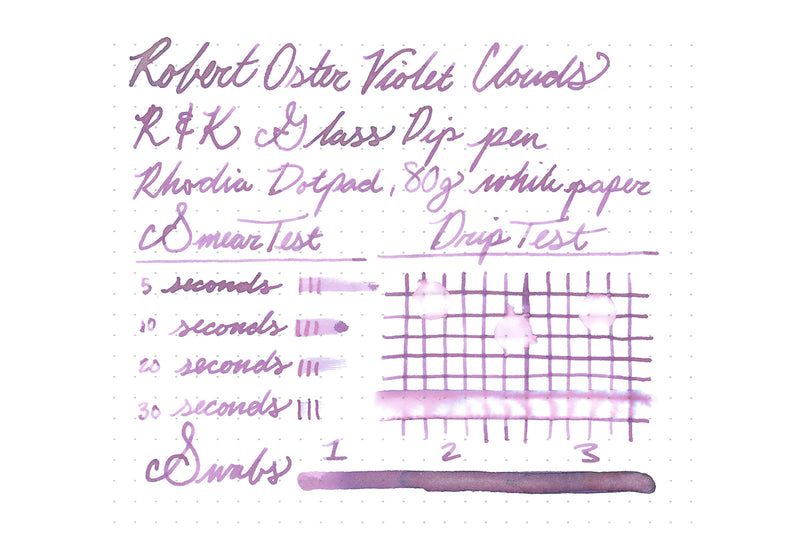 Robert Oster Violet Clouds
R & K Glass Dip pen
Rhodia Dotpad, 80g white paper
Smear Test
Drip Test
5 seconds
10 seconds
20 seconds
30 seconds
Swabs
1 2 3